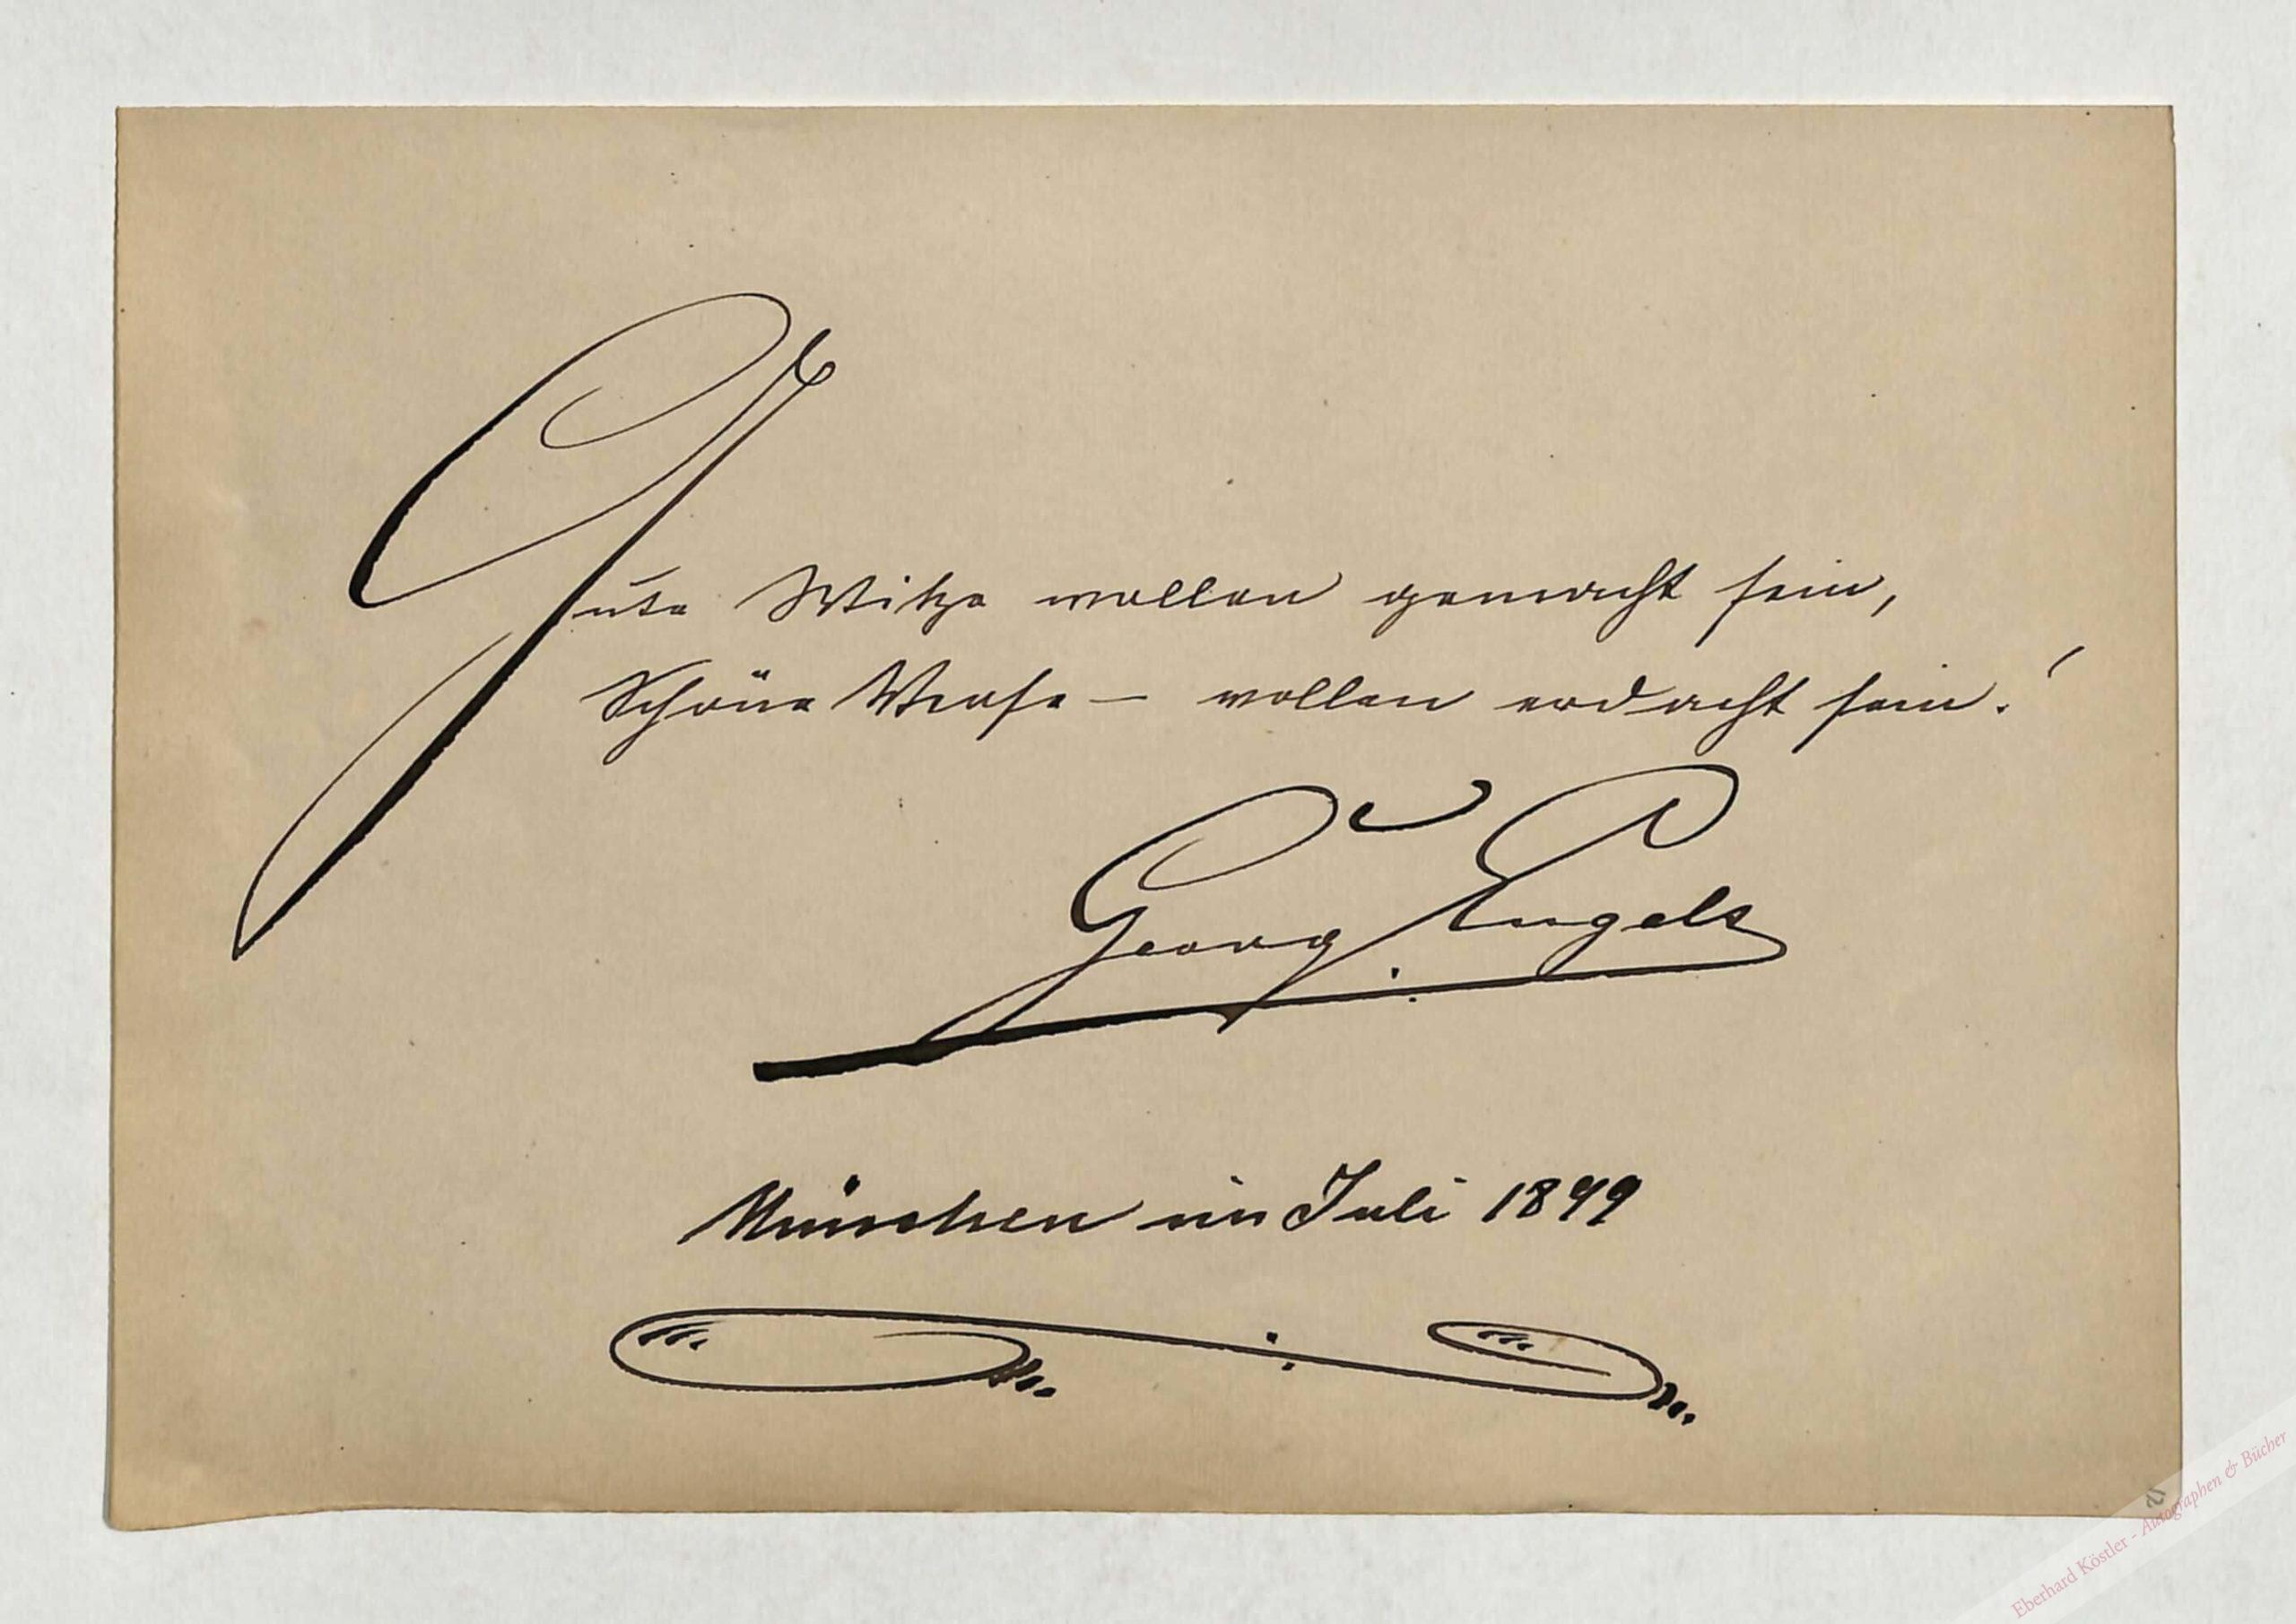 Gute Witze wollen gemacht sein,
Schöne Verse – wollen erdacht sein!
Georg Engels
München im Juli 1899
Eberhard Köstler - Autographen & Bücher